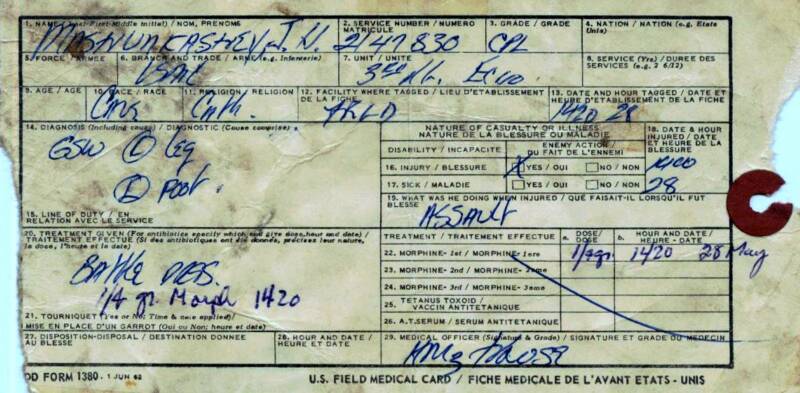 1. NAME (Last-First-Middle Initial) / NOM, PRENOMS
2. SERVICE NUMBER / NUMERO MATRICULE
3. GRADE / GRADE
4. NATION / NATION (e.g. Etats Unis)
2147830
CPL
5. FORCE / ARMEE
6. BRANCH AND TRADE / ARME (e.g. Infanterie)
7. UNIT / UNITE
8. SERVICE (Yrs) / DUREE DES SERVICES (e.g. 2 6/12)
USMC
9. AGE / AGE
10. RACE / RACE
11. RELIGION / RELIGION
12. FACILITY WHERE TAGGED / LIEU D'ETABLISSEMENT DE LA FICHE
13. DATE AND HOUR TAGGED / DATE ET HEURE D'ETABLISSEMENT DE LA FICHE
Cauc
Cath.
FIELD
1420 28
14. DIAGNOSIS (Including cause) / DIAGNOSTIC (Cause comprise)
GSW Ⓛ Leg
Ⓛ Foot
NATURE OF CASUALTY OR ILLNESS
NATURE DE LA BLESSURE OU MALADIE
18. DATE & HOUR INJURED / DATE ET HEURE DE LA BLESSURE
DISABILITY / INCAPACITE
ENEMY ACTION / DU FAIT DE L'ENNEMI
16. INJURY / BLESSURE
X YES / OUI
NO / NON
17. SICK / MALADIE
YES / OUI
NO / NON
28
15. LINE OF DUTY / EN RELATION AVEC LE SERVICE
19. WHAT WAS HE DOING WHEN INJURED / QUÉ FAISAIT-IL LORSQU'IL FUT BLESSE
ASSAULT
20. TREATMENT GIVEN (For antibiotics specify which and give dose, hour and date) / TRAITEMENT EFFECTUE (Si des antibiotiques ont été donnés, précisez leur nature, la dose, l'heure et la date)
Battle Dres.
1/4 gr. Morph 1420
TREATMENT / TRAITEMENT EFFECTUE
a. DOSE/ DOSE
b. HOUR AND DATE / HEURE - DATE
22. MORPHINE- 1st / MORPHINE- 1ere
1/4gr.
1420 28 May
23. MORPHINE- 2nd / MORPHINE- 2eme
24. MORPHINE- 3rd / MORPHINE- 3eme
25. TETANUS TOXOID / VACCIN ANTITETANIQUE
26. A.T. SERUM / SERUM ANTITETANIQUE
21. TOURNIQUET (Yes or No; Time & date applied) / MISE EN PLACE D'UN GARROT (Oui ou Non; heure et date)
27. DISPOSITION-DISPOSAL / DESTINATION DONNEE AU BLESSE
28. HOUR AND DATE / HEURE ET DATE
29. MEDICAL OFFICER (Signature & Grade) / SIGNATURE ET GRADE DU MEDECIN
DD FORM 1380. 1 JUN 62
U.S. FIELD MEDICAL CARD / FICHE MEDICALE DE L'AVANT ETATS - UNIS